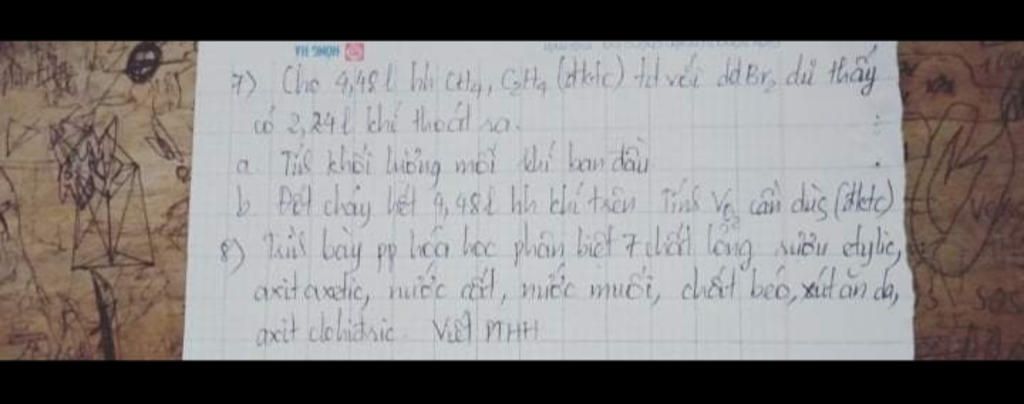 HỒNG HÀ
7) Cho 4,48l hh CH4, C2H4 (đktc) td với dd Br2 dư thấy
có 2,24l khí thoát ra.
a. Tính khối lượng mỗi khí ban đầu
b. Đốt cháy hết 4,48l hh khí trên. Tính VO2 cần dùng (đktc)
8) Trình bày pp hóa học phân biệt 7 chất lỏng rượu etylic,
axit axetic, nước cất, nước muối, chất béo, xút ăn da,
axit clohidric. Viết PTHH